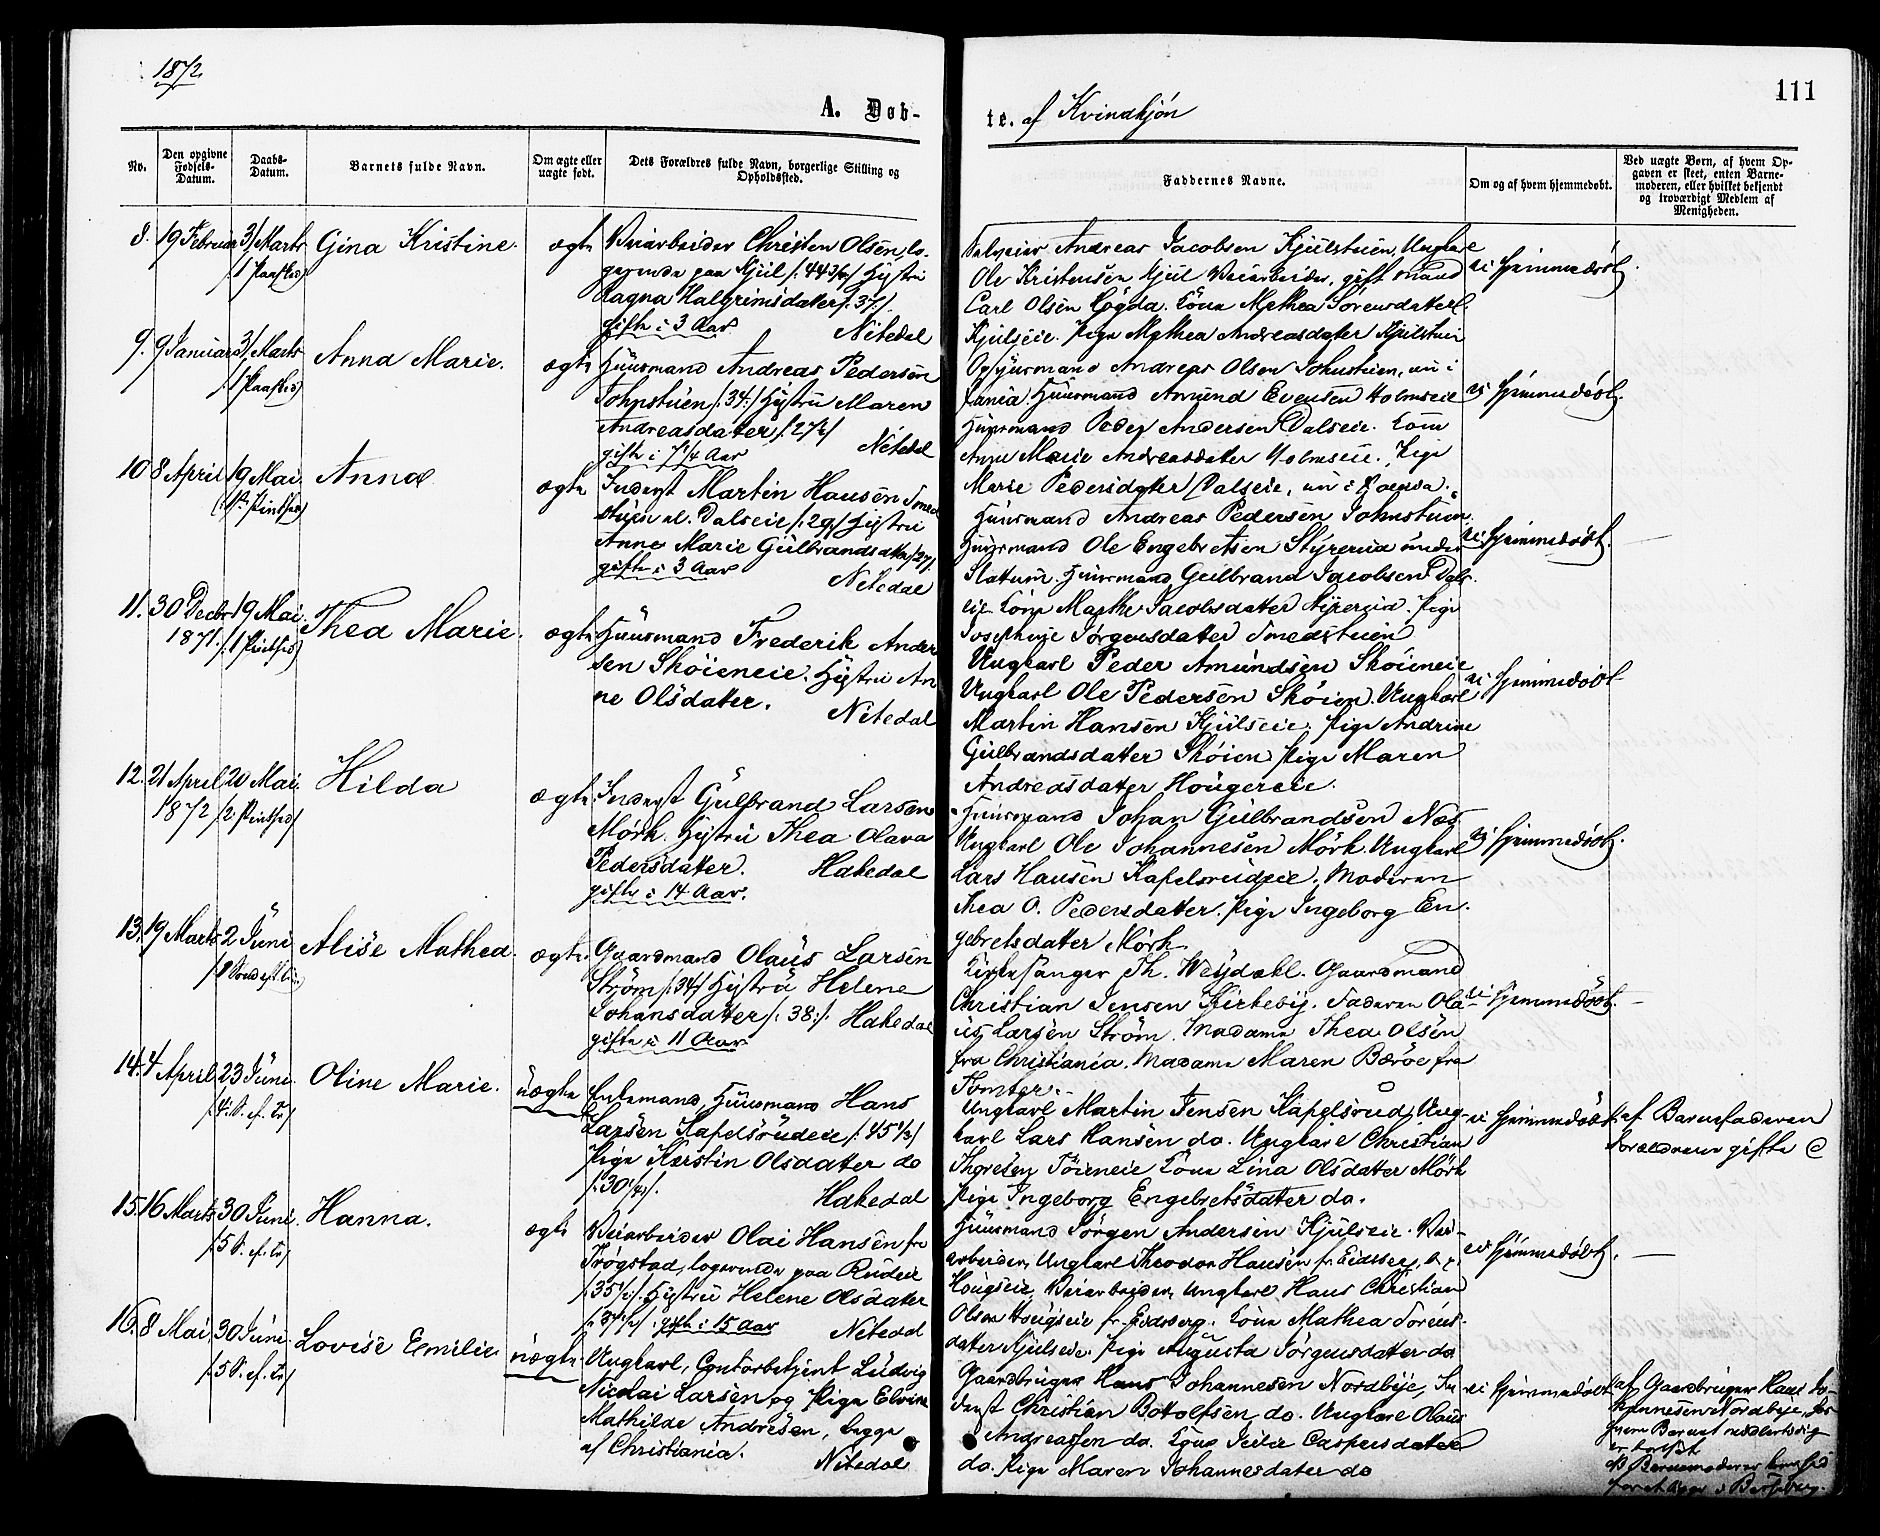 1872
111
A. Døb-
te. af Kvindkjøn
No.
Den opgivne
Fødsels-
Datum.
Daabs-
Datum.
Barnets fulde Navn.
Om ægte eller
uægte født.
Dets Forældres fulde Navn, borgerlige Stilling og
Opholdssted.
Faddernes Navne.
Om og af hvem hjemmedøbt.
Ved uægte Børn, af hvem Op-
gaven er skeet, enten Barne-
moderen, eller hvilket bekjendt
og troværdigt Medlem af
Menigheden.
8. 19 Februar 31 Marts Gina Kristine. ægte
1 Paasked
Veiarbeider Christen Olsen, lo-
gerende paa Kjul /: 44 3/4 / Hustru
Ragna Halgrimsdatter /: 37/.
gifte i 3 Aar. Nitedal
Andreas Jacobsen Kjulstuen, Ungkarl
Ole Kristensen Kjul Veiarbeider, gift mand
Carl Olsen Høgda. Kone Mathea Sørensdatter
Kjulseie. Pige Mathea Andreasdatter Kjulstuen
ei hjemmedøbt.
9. 9 Januar 31 Marts Anna Marie. ægte
/1 Paasked/
Huusmand Andreas Pedersen
Johnstuen /: 34:/ Hustru Maren
Andreasdatter /: 27 /
gifte i 7 1/4 Aar Nitedal
Andreas Olsen Johnstuen, nu i
Huusmand Amund Evensen Holmseie
Huusmand Peder Andersen Dalseie. Kone
Anne Marie Andreasdatter Holmseie. Pige
Marie Pedersdatter Dalseie, nu i
ei hjemmedøbt.
10 8 April 19 Mai Anna ægte
/1ste Pintsed/
Inderst Martin Hansen Smed
stuen al. Dalseie /: 29/ Hustru
Anne Marie Gulbrandsdatter /27/.
gifte i 3 Aar Nitedal
Huusmand Andreas Pedersen Johnstuen
Huusmand Ole Engebretsen Styrerud under
Slattum. Huusmand Gulbrand Jacobsen Dals-
eie. Kone Marthe Jacobsdatter Styrerud. Pige
Josephine Jørgensdatter Smedstuen
ei hjemmedøbt.
11. 30 Decbr 19 Mai. Thea Marie. ægte
1871. /1 Pintsed/
Huusmand Frederik Ander
sen Skøieneie. Hustru An
ne Olsdatter. Nitedal
Ungkarl Peder Amundsen Skøieneie
Ungkarl Ole Pedersen Skøien. Ungkarl
Martin Hansen Kjulseie. Pige Andrine
Gulbrandsdatter Skøien. Pige Maren
Andreasdatter Hougereie.
ei hjemmedøbt
12. 21 April 20 Mai. Hilda ægte
1872 /2. Pintsed/
Inderst Gulbrand Larsen
Mørk. Hustru Thea Olava
Pedersdatter. Hakedal
gifte i 14 Aar.
Huusmand Johan Gulbrandsen Næs.
Ungkarl Ole Johannesen Mørk. Ungkarl
Lars Hansen Kapelsrudeie. Moderen
Thea O. Pedersdatter. Pige Ingeborg En-
gebretsdatter Mørk.
ei hjemmedøbt.
13. 19 Marts 2 Juni Alise Mathea. ægte.
Gaardmand Olaus Larsen
Strøm /: 34/ Hustru Helene
Johansdatter /: 38:/. Hakedal
gifte i 11 Aar
Kirkesanger Th. Weydahl. Gaardmand
Christian Jensen Kirkeby. Faderen Ola
us Larsen Strøm. Madame Thea Olsen
fra Christiania. Madame Maren Bærøe fra
Tomter.
ei hjemmedøbt.
14. 4 April 23 Juni. Oline Marie. uægte
/4. S. ef. Tr/
Enkemand, Huusmand Hans
Larsen Kapelsrudeie /: 45 1/3/
Pige Kerstin Olsdatter do
/: 30 1/4/. Hakedal
Ungkarl Martin Jensen Kapelsrud, Ung-
karl Lars Hansen do. Ungkarl Christian
Thoresen Tøieneie Kone Lina Olsdatter Mørk
Pige Ingeborg Engebretsdatter do.
ei hjemmedøbt.
af Barnefaderen
Forældrene gifte
15. 16 Marts 30 Juni. Hanna. ægte
/5 S. ef. Tr/
Veiarbeider Olai Hansen fra
Trøgstad, logerende paa Rudeie
/35 /. Hustru Helene Olsdatter
/: 37 1/2/. gifte i 15 Aar Nitedal
Huusmand Jørgen Andersen Kjulseie. Vei-
arbeider, Ungkarl Theodor Hansen fr. Eidsberg,
Hougseie, Veiarbeider, Ungkarl Hans Christian
Olsen Hougseie fr. Eidsberg. Kone Mathea Sørens-
datter Kjulseie. Pige Augusta Jørgensdatter do
ei hjemmedøbt.
16. 8 Mai 30 Juni. Lovise Emilie. uægte
/5 S. ef. Tr/
Ungkarl, Contorbetjent Ludvig
Nicolai Larsen og Pige Elvine
Mathilde Andresen, begge
af Christiania. Nitedal
Gaardbruger Hans Johannesen Nordbye, In
derst Christian Botolfsen do. Ungkarl Olaus
Andreassen do. Kone Caspersdatter
do. Pige Maren Johannesdatter do
ei hjemmedøbt
af Gaardbruger Hans Jo-
hannesen Nordbye, hos
hvem Barnet
er
Barnemoderen